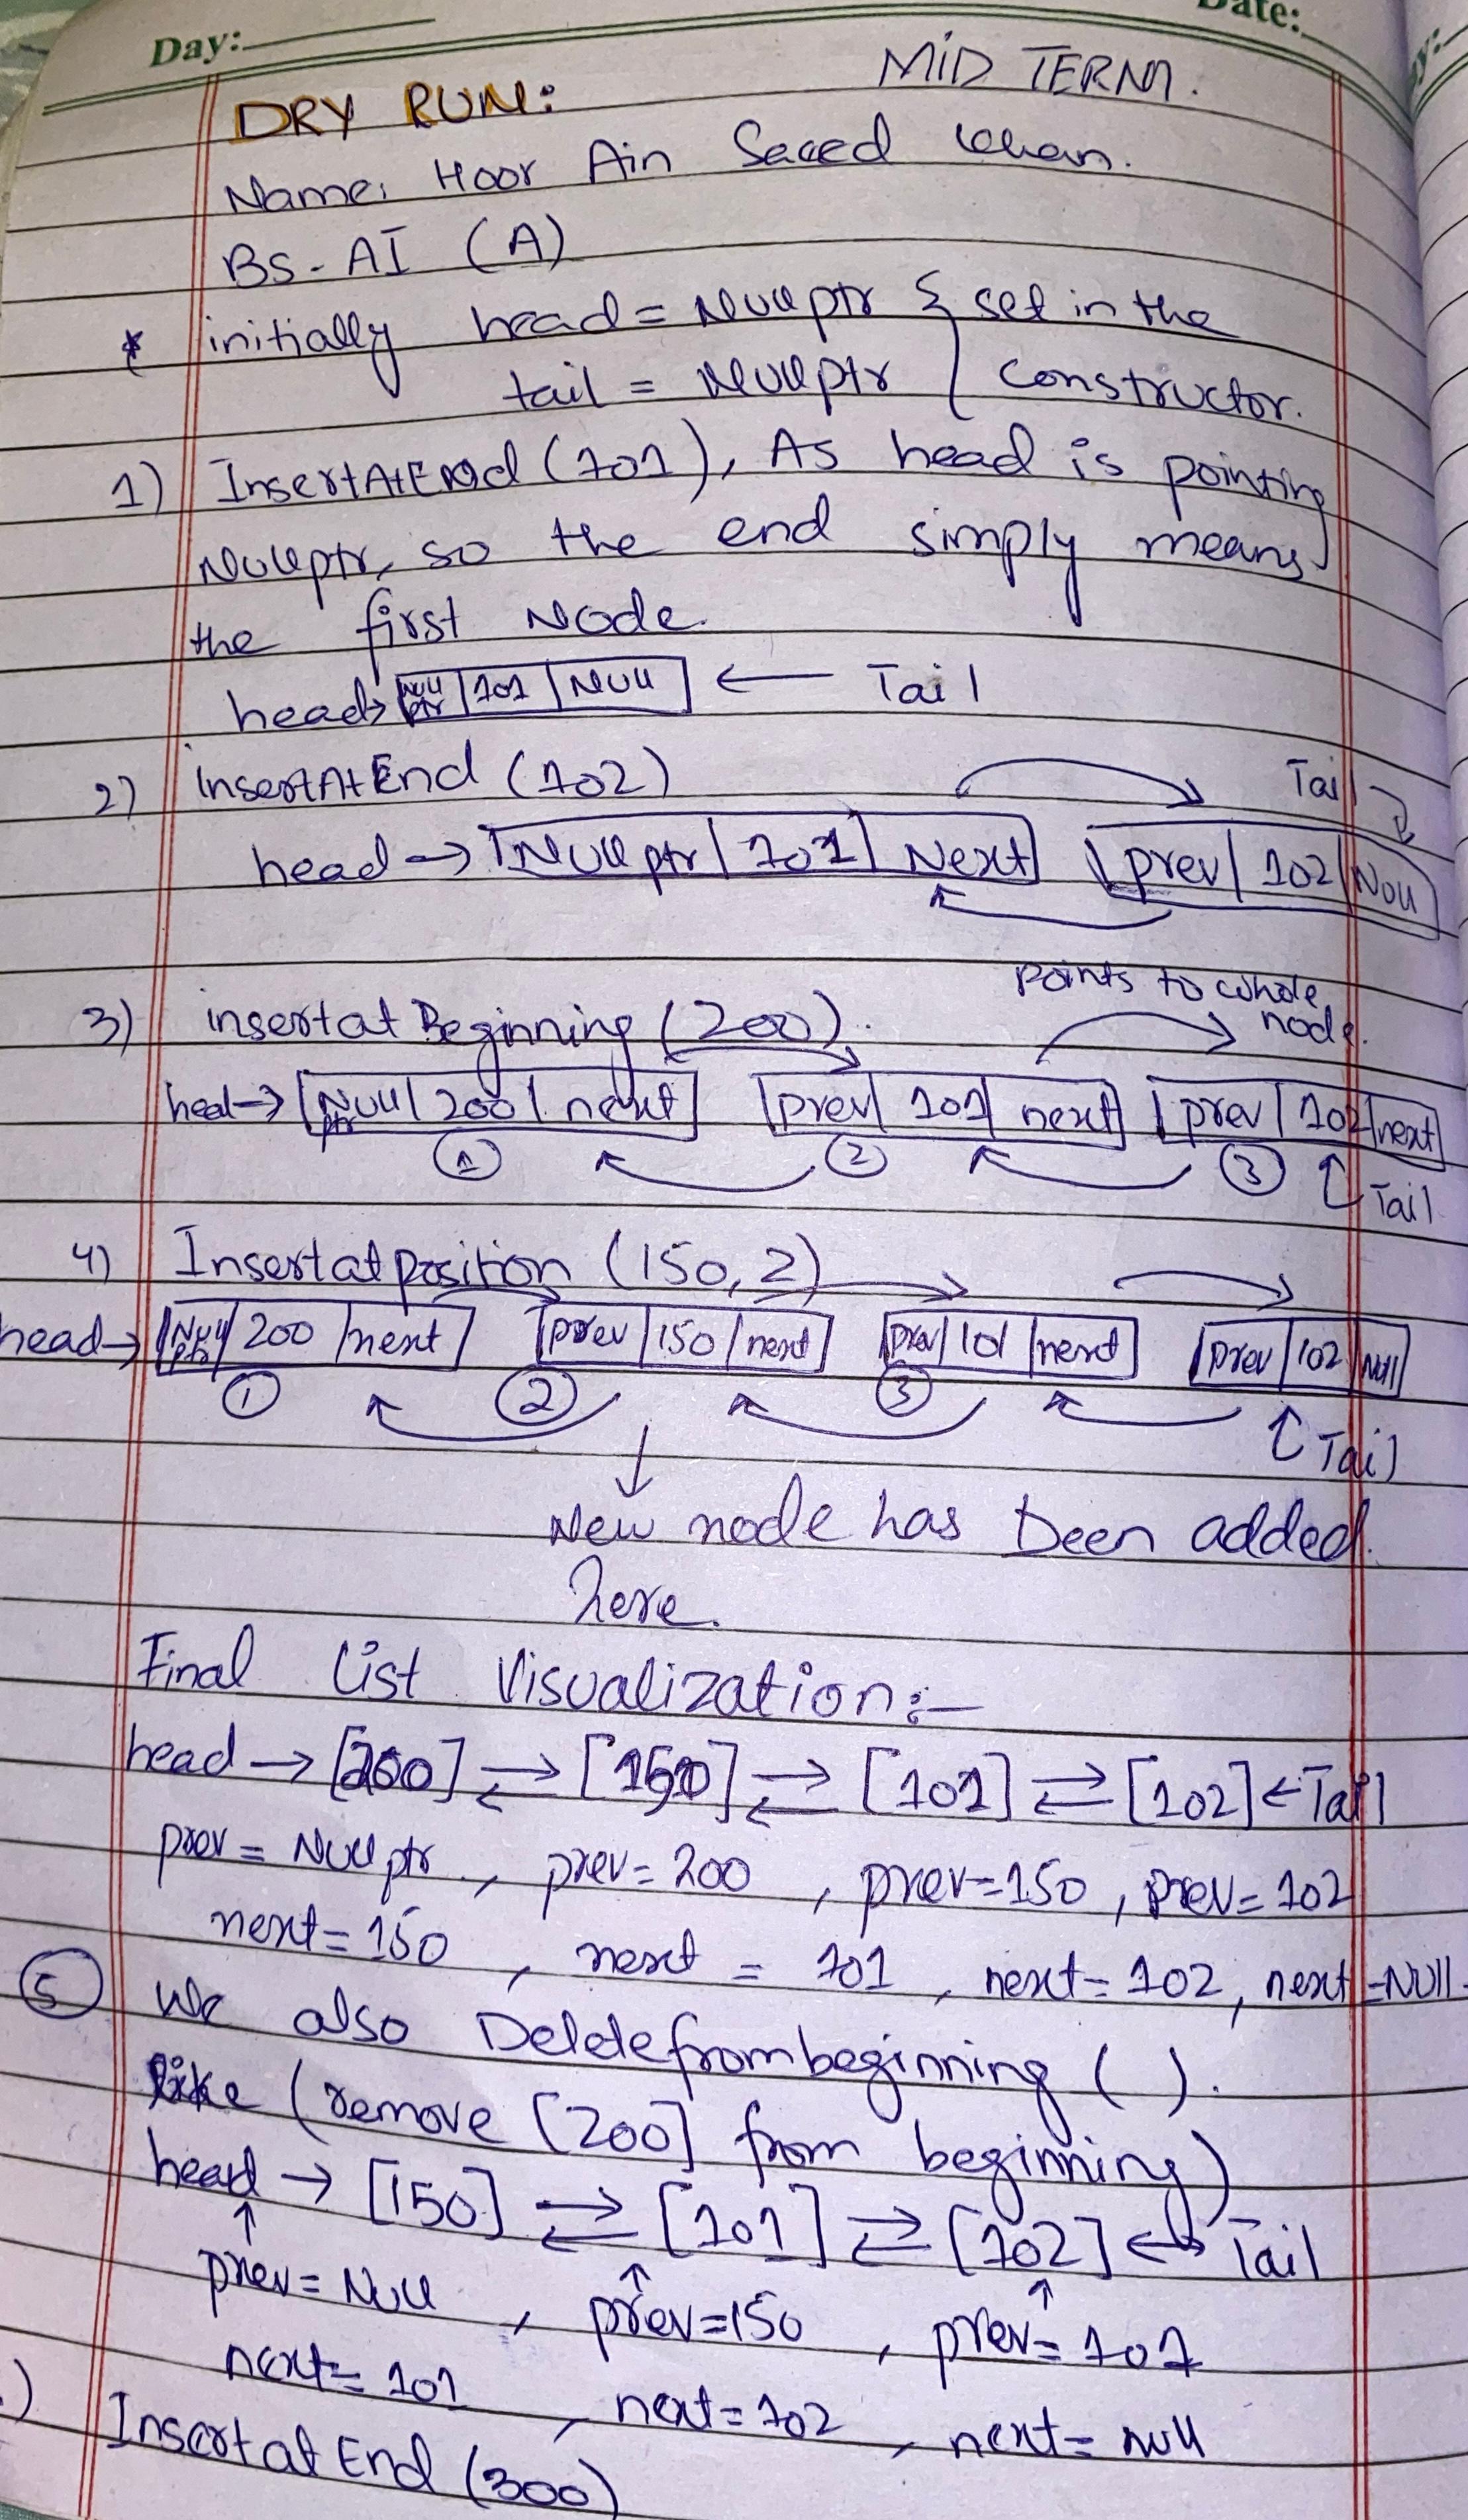 Day:
Date:
MID TERM.
DRY RUN:
Name: Hoor Ain Saeed Khan.
BS-AI (A)
* initially head = Nullptr } set in the
tail = Nullptr } constructor.
1) InsertAtEnd (101), As head is pointing
Nullptr, so the end simply means
the first Node.
head→ [Null ptr | 101 | Null] ← Tail
2) insertAtEnd (102)
Tail
head → [Nullptr | 101 | Next] [prev | 102 | Null]
3) insertat Beginning (200).
points to whole node.
head→ [Null ptr | 200 | next] [prev | 101 | next] [prev | 102 | next]
① ② ③ ↑ Tail
4) Insertatposition (150, 2)
head→ [Null ptr | 200 | next] [prev | 150 | next] [prev | 101 | next] [prev | 102 | Null]
① ② ③ ↑ Tail
New node has been added
here.
Final List Visualization:-
head → [200] ⇄ [150] ⇄ [101] ⇄ [102] ← Tail
prev = Nullptr, prev = 200, prev = 150, prev = 102
next = 150, next = 101, next = 102, next = Null.
⑤ We also Deletefrombeginning ( ).
like (remove [200] from beginning)
head → [150] ⇄ [101] ⇄ [102] ← Tail
prev = Null, prev = 150, prev = 101
next = 101, next = 102, next = null
.) Insertat End (300)